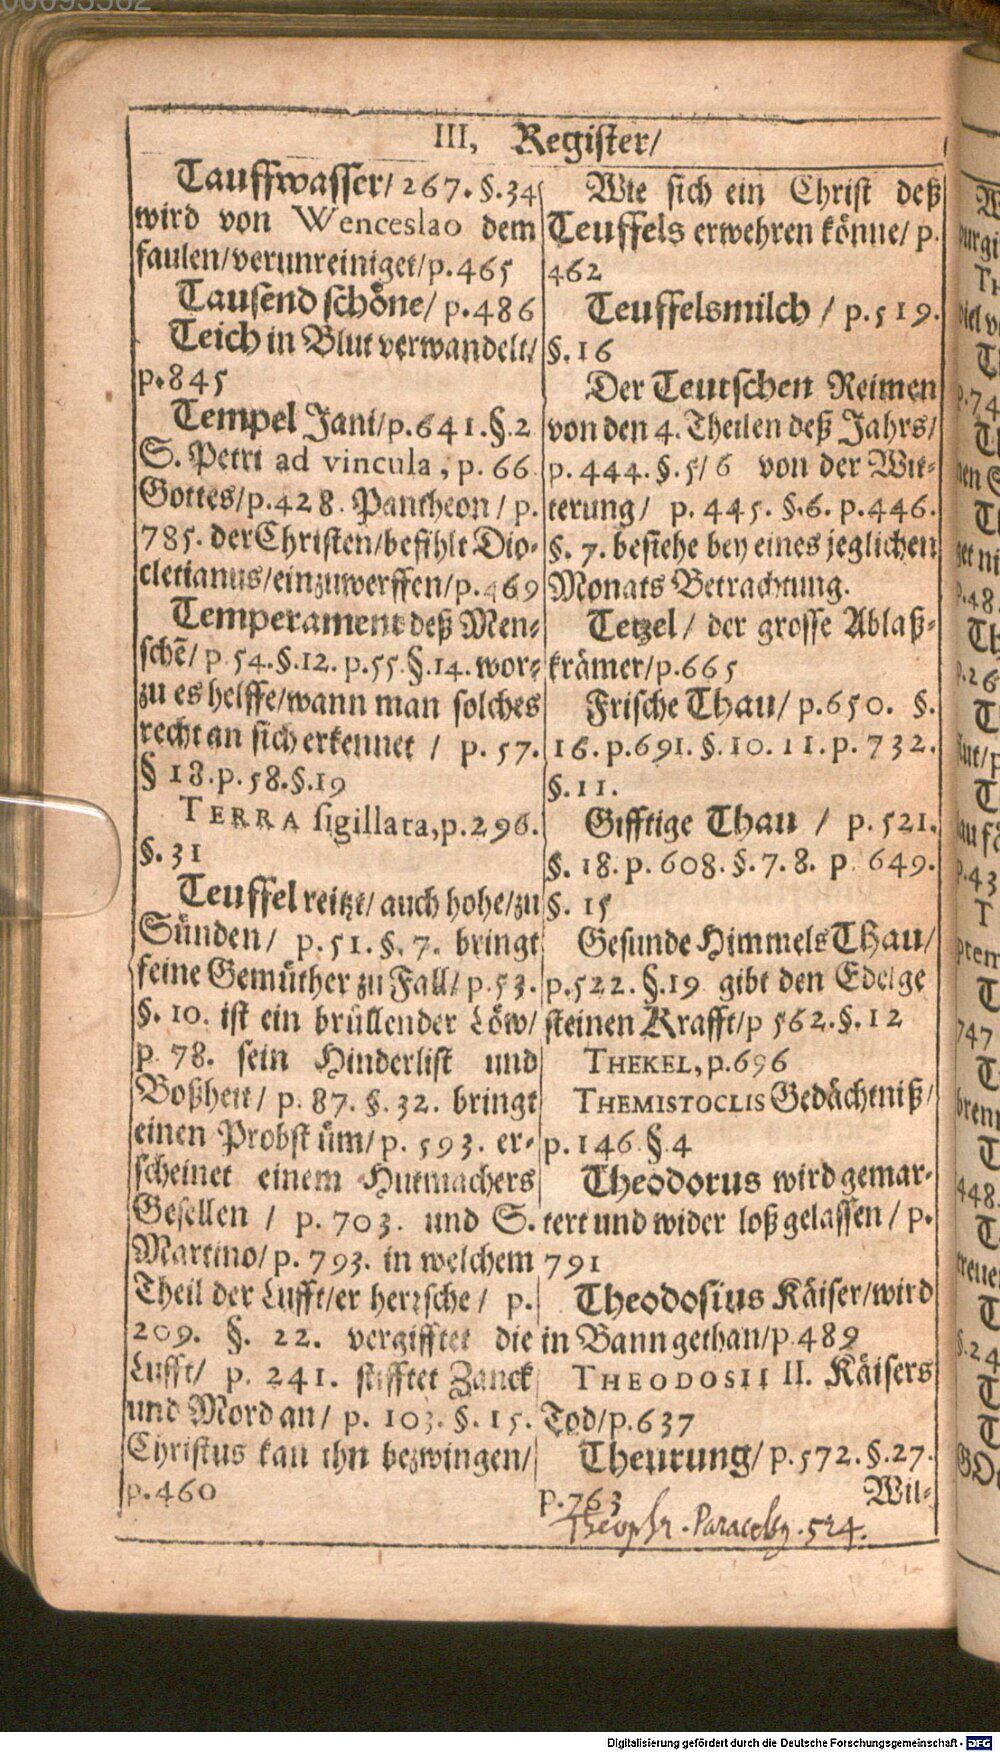 III, Register/
Tauffwasser/ 267. §. 34
wird von Wenceslao dem
faulen/verunreiniget/p. 465
Tausendschöne/ p. 486
Teich in Blut verwandelt/
p. 845
Tempel Jani/p. 641. §. 2
S. Petri ad vincula, p. 66
Gottes/p. 428. Pantheon / p.
785. der Christen/befihlt Dio-
cletianus/einzuwerffen/p. 469
Temperament deß Men-
schẽ/ p. 54. §. 12. p. 55. §. 14. wor-
zu es helffe/wann man solches
recht an sich erkennet / p. 57.
§ 18. p. 58. §. 19
TERRA sigillata, p. 296.
§. 31
Teuffel reitzt/ auch hohe/zu
Sünden/ p. 51. §. 7. bringt
feine Gemüther zu Fall/ p. 53.
§. 10. ist ein brüllender Löw/
p. 78. sein Hinderlist und
Boßheit/ p. 87. §. 32. bringt
einen Probst üm/ p. 593. er-
scheinet einem Hutmachers
Gesellen / p. 703. und S.
Martino/ p. 793. in welchem
Theil der Lufft/er herzsche / p.
209. §. 22. vergifftet die
Lufft/ p. 241. stifftet Zanck
und Mord an/ p. 103. §. 15.
Christus kan ihn bezwingen/
p. 460
Wie sich ein Christ deß
Teuffels erwehren könne/ p.
462
Teuffelsmilch / p. 519.
§. 16
Der Teutschen Reimen
von den 4. Theilen deß Jahrs/
p. 444. §. 5/6 von der Wit-
terung/ p. 445. §. 6. p. 446.
§. 7. bestehe bey eines jeglichen
Monats Betrachtung.
Tetzel/ der grosse Ablaß-
krämer/p. 665
Frische Thau/ p. 650. §.
16. p. 691. §. 10. 11. p. 732.
§. 11.
Gifftige Thau / p. 521.
§. 18. p. 608. §. 7. 8. p. 649.
§. 15
Gesunde Himmels Thau/
p. 522. §. 19 gibt den Edelge
steinen Krafft/p 562. §. 12
THEKEL, p. 696
THEMISTOCLIS Gedächtniß/
p. 146 §. 4
Theodorus wird gemar-
tert und wider loß gelassen / p.
791
Theodosius Käiser/wird
in Bann gethan/p. 489
THEODOSII II. Käisers
Tod/p. 637
Theurung/ p. 572. §. 27.
p. 763
Wil-
Theophr. Paracelsg. 524.
Digitalisierung gefördert durch die Deutsche Forschungsgemeinschaft - DFG